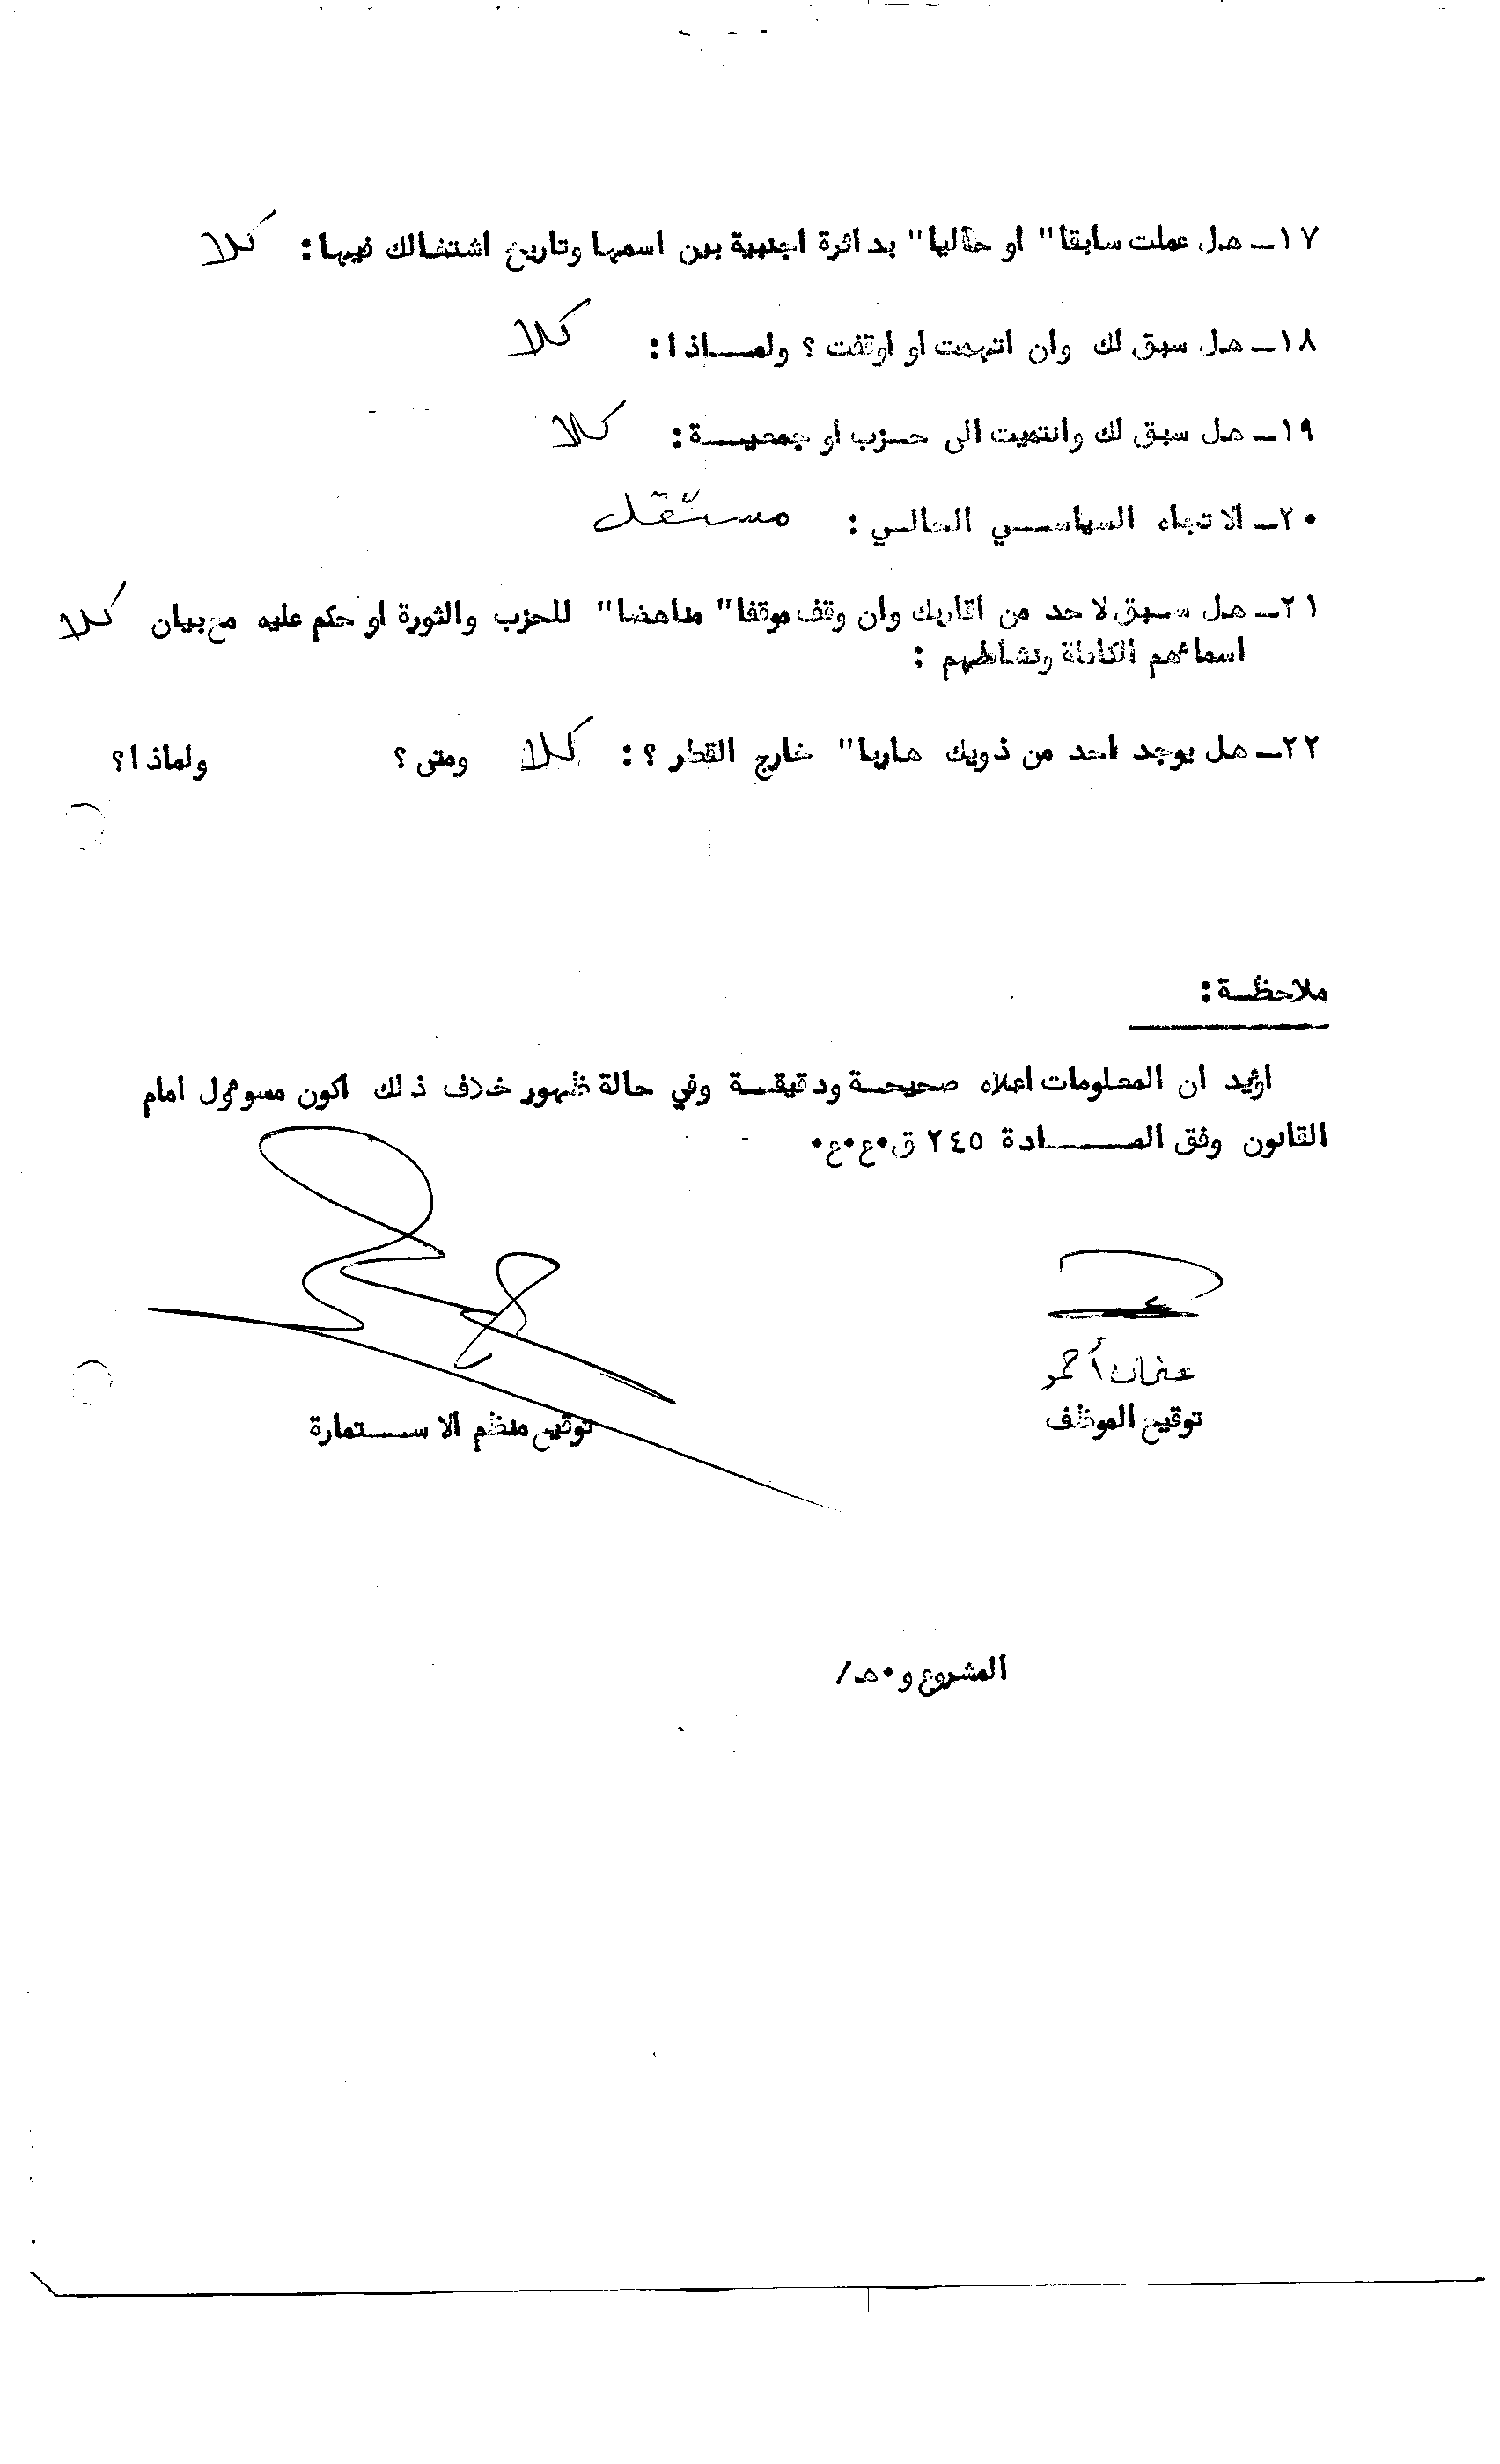 ١٧ــ هل عملت سابقا" او حاليا" بدائرة اجنبية بين اسمها وتاريخ اشتغالك فيها: كلا
١٨ــ هل سبق لك وان اتهمت او اوقفت ؟ ولمـــاذا: كلا
١٩ــ هل سبق لك وانتميت الى حــزب او جمعيـــة: كلا
٢٠ــ الاتجاه السياســـي الحالــي : مستقل
٢١ــ هل ســبق لاحد من اقاربك وان وقف موقفا" مناهضا" للحزب والثورة او حكم عليه مع بيان كلا
اسمائهم الكاملة ونشاطهم :
٢٢ــ هل يوجد احد من ذويك هاربا" خارج القطر ؟: كلا ومتى ؟ ولماذا؟
ملاحظــة:
اؤيد ان المعلومات اعلاه صحيحــة ودقيقــة وفي حالة ظهور خلاف ذلك اكون مسوءول امام
القانون وفق المـــــــادة ٢٤٥ ق٠ع٠ع٠
عثمان أحمد
توقيع الموظف
توقيع منظم الاســــتمارة
المشروع و٠هـ/